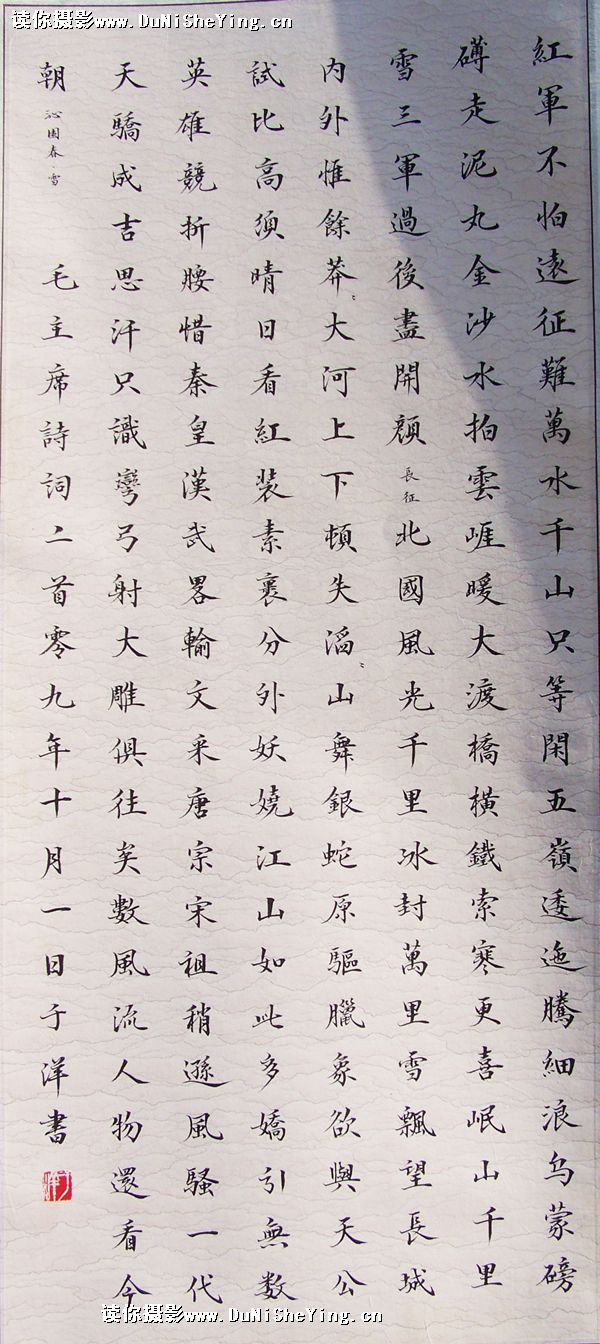 读你摄影www.DuNiSheYing.cn
紅軍不怕遠征難萬水千山只等閑五嶺逶迤騰細浪乌蒙磅
礴走泥丸金沙水拍雲崕暖大渡橋横鐵索寒更喜岷山千里
雪三軍過後盡開顔長征北國風光千里冰封萬里雪飄望長城
内外惟餘莽〻大河上下頓失滔〻山舞銀蛇原驅臘象欲與天公
試比高須晴日看紅装素裹分外妖嬈江山如此多嬌引無数
英雄競折腰惜秦皇漢武畧輸文采唐宗宋祖稍遜風騷一代
天驕成吉思汗只識彎弓射大雕俱往矣數風流人物還看今
朝沁園春·雪毛主席詩詞二首零九年十月一日于洋書
读你摄影www.DuNiSheYing.cn